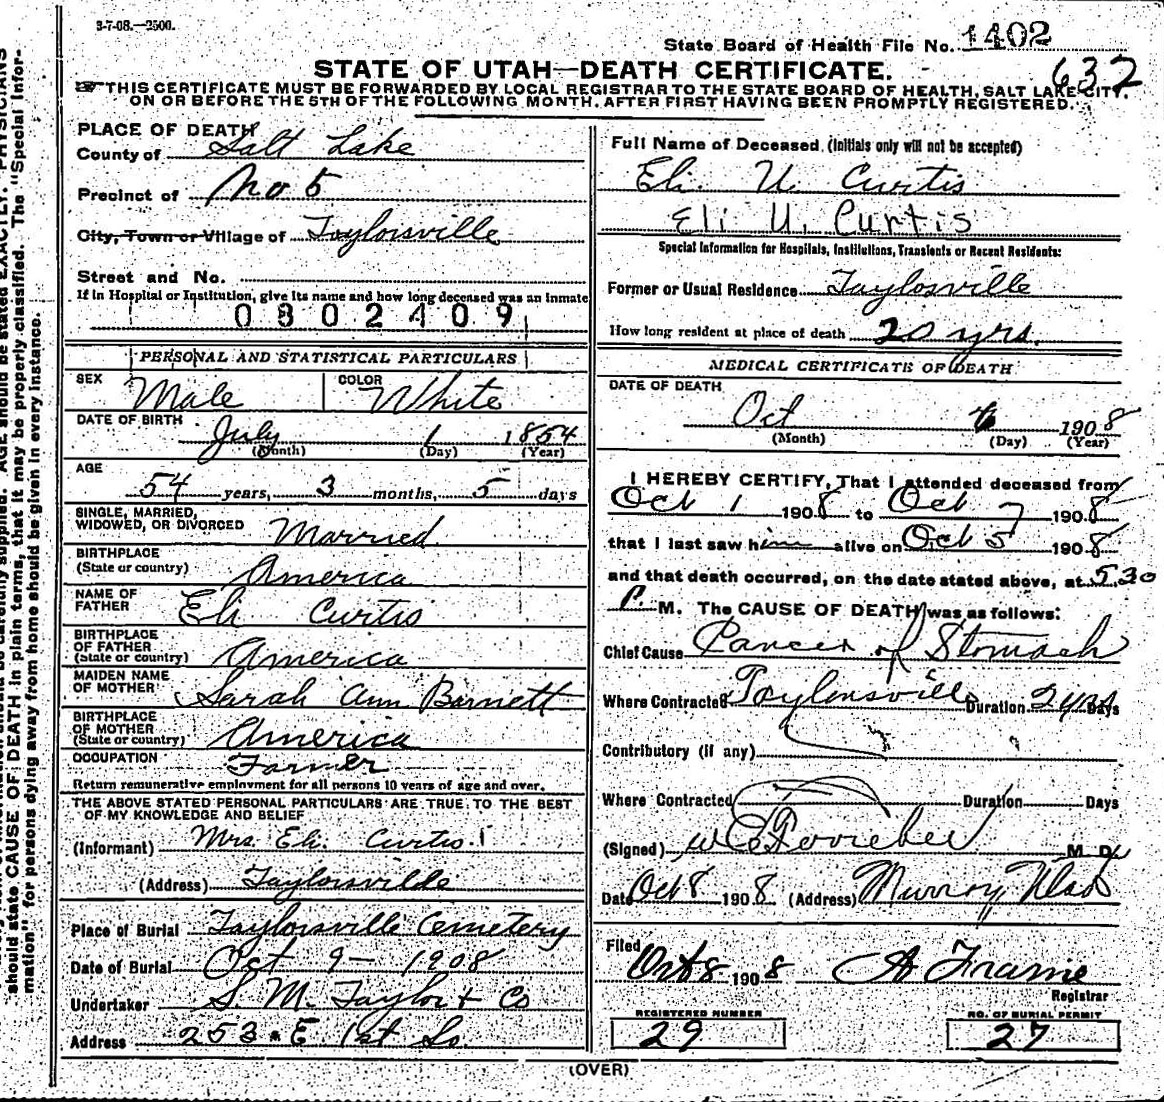 3-7-08.—2500.
State Board of Health File No. 1402
632
STATE OF UTAH—DEATH CERTIFICATE.
THIS CERTIFICATE MUST BE FORWARDED BY LOCAL REGISTRAR TO THE STATE BOARD OF HEALTH, SALT LAKE CITY,
ON OR BEFORE THE 5TH OF THE FOLLOWING MONTH, AFTER FIRST HAVING BEEN PROMPTLY REGISTERED.
PLACE OF DEATH
County of Salt Lake
Precinct of No 5
City, Town or Village of Taylorsville
Street and No.
If in Hospital or Institution, give its name and how long deceased was an inmate
0802409
PERSONAL AND STATISTICAL PARTICULARS
SEX Male COLOR White
DATE OF BIRTH July 1 1854
(Month) (Day) (Year)
AGE 54 years, 3 months, 5 days
SINGLE, MARRIED,
WIDOWED, OR DIVORCED Married
BIRTHPLACE
(State or country) America
NAME OF
FATHER Eli Curtis
BIRTHPLACE
OF FATHER
(State or country) America
MAIDEN NAME
OF MOTHER Sarah Ann Barnett
BIRTHPLACE
OF MOTHER
(State or country) America
OCCUPATION Farmer
Return remunerative employment for all persons 10 years of age and over.
THE ABOVE STATED PERSONAL PARTICULARS ARE TRUE TO THE BEST
OF MY KNOWLEDGE AND BELIEF
(Informant) Mrs. Eli. Curtis
(Address) Taylorsville
Place of Burial Taylorsville Cemetery
Date of Burial Oct 9— 1908
Undertaker S. M. Taylor + Co
Address 253 E. 1st So.
Full Name of Deceased (Initials only will not be accepted)
Eli. U. Curtis
Eli U. Curtis
Special Information for Hospitals, Institutions, Transients or Recent Residents:
Former or Usual Residence Taylosville
How long resident at place of death 20 yrs.
MEDICAL CERTIFICATE OF DEATH
DATE OF DEATH
Oct 1908
(Month) (Day) (Year)
I HEREBY CERTIFY, That I attended deceased from
Oct 1 1908 to Oct 7 1908
that I last saw him alive on Oct 5 1908
and that death occurred, on the date stated above, at 5.30
P. M. The CAUSE OF DEATH was as follows:
Chief Cause Cancer of Stomach
Where Contracted Taylorsville Duration 2 yrs Days
Contributory (if any)
Where Contracted Duration Days
(Signed) M. D.
Date Oct 8 1908 (Address) Murray Utah
Filed
Oct 8 1908 A Frame
Registrar
REGISTERED NUMBER
29
NO. OF BURIAL PERMIT
27
(OVER)
should state CAUSE OF DEATH in plain terms, that it may be properly classified. The "Special Infor-
mation" for persons dying away from home should be given in every instance.